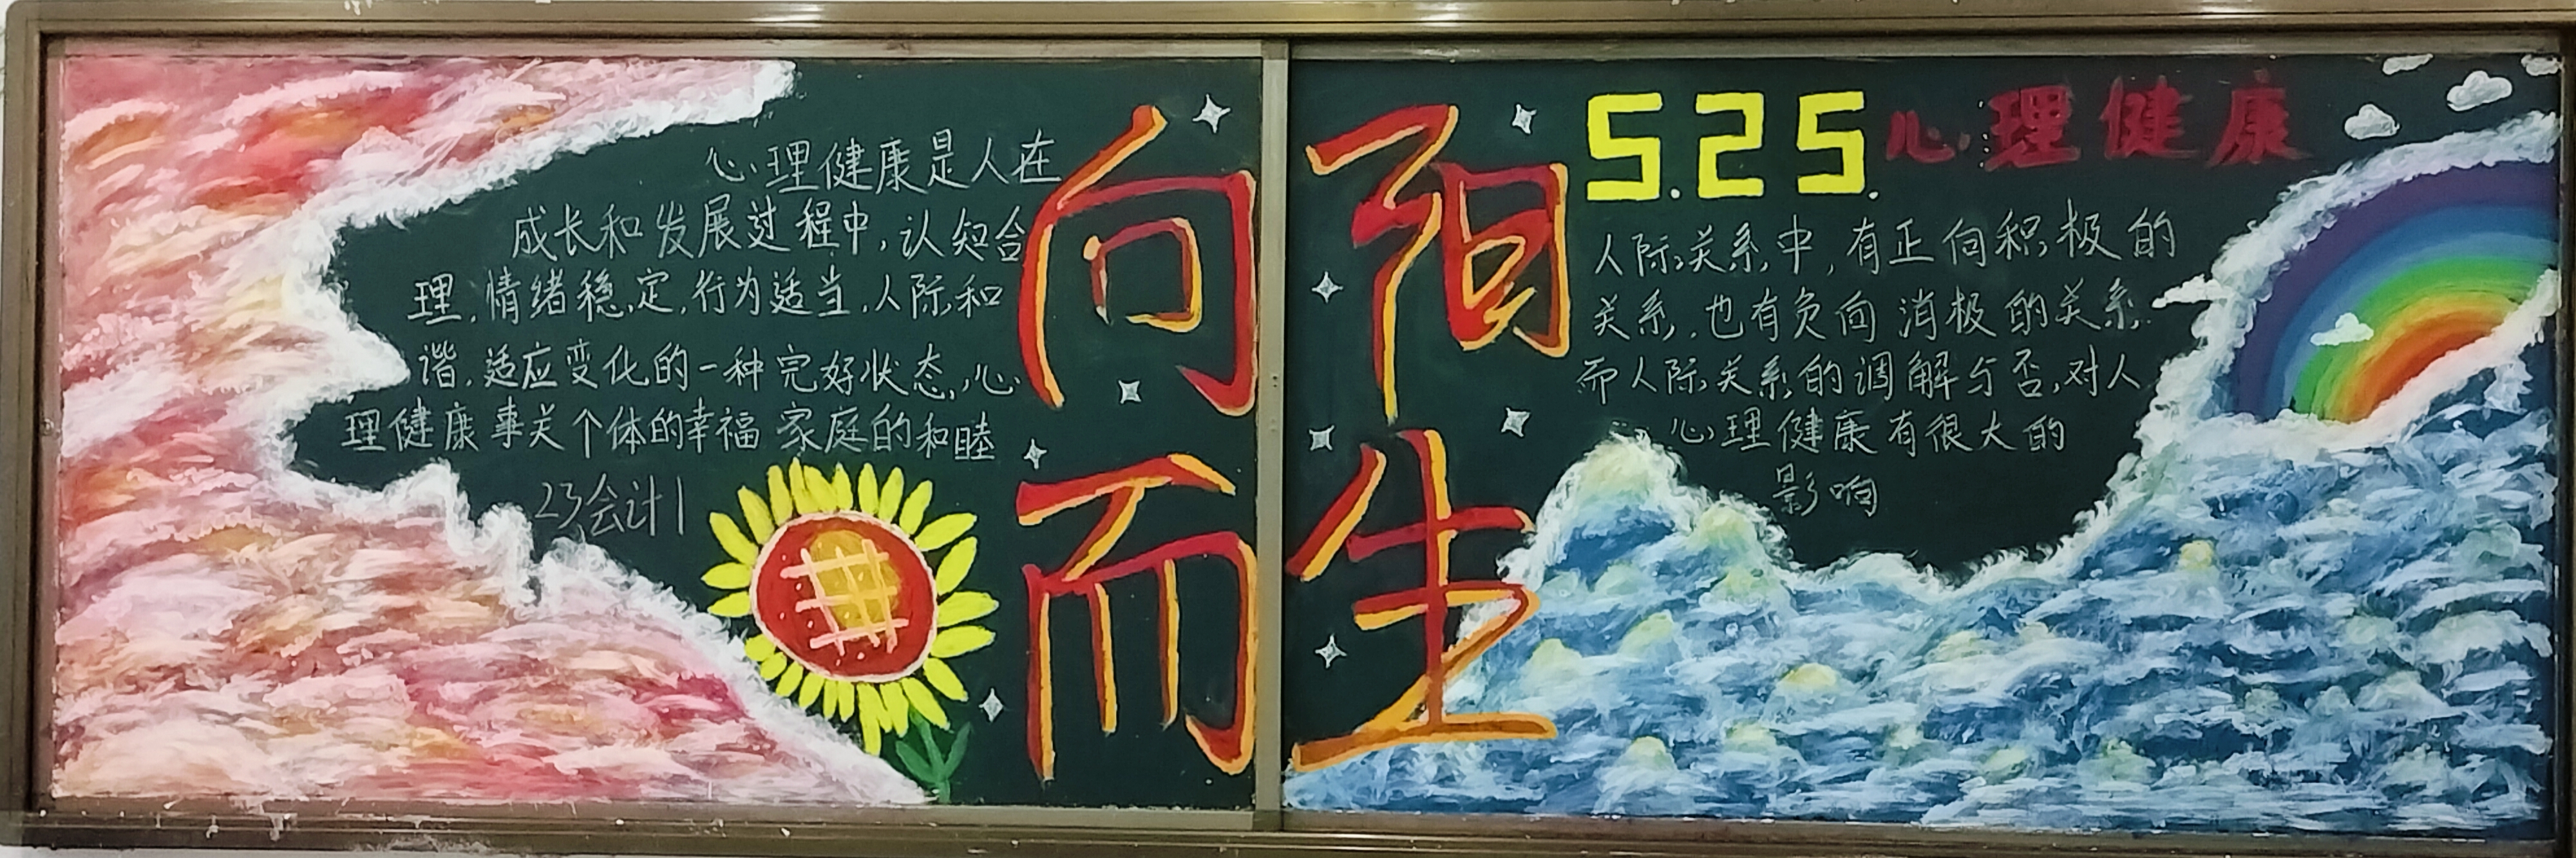 心理健康是人在
成长和发展过程中,认知合
理,情绪稳定,行为适当,人际和
谐,适应变化的一种完好状态,心
理健康事关个体的幸福 家庭的和睦
23会计1
向阳
而生
5.25.心理健康
人际关系中,有正向积极的
关系,也有负向消极的关系.
而人际关系的调解与否,对人
心理健康有很大的
影响